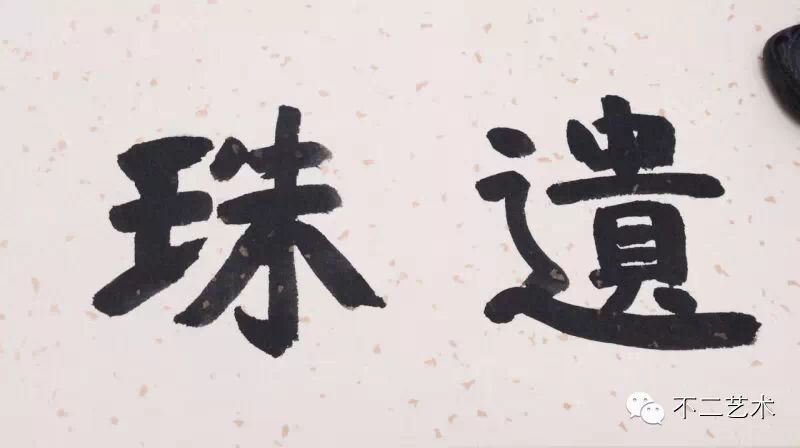 遺珠
不二艺术